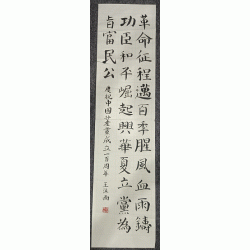 革命征程邁百季腥風血雨鑄
功臣和平崛起興華夏立黨為
旨富民公
慶祝中国共產黨成立一百周年